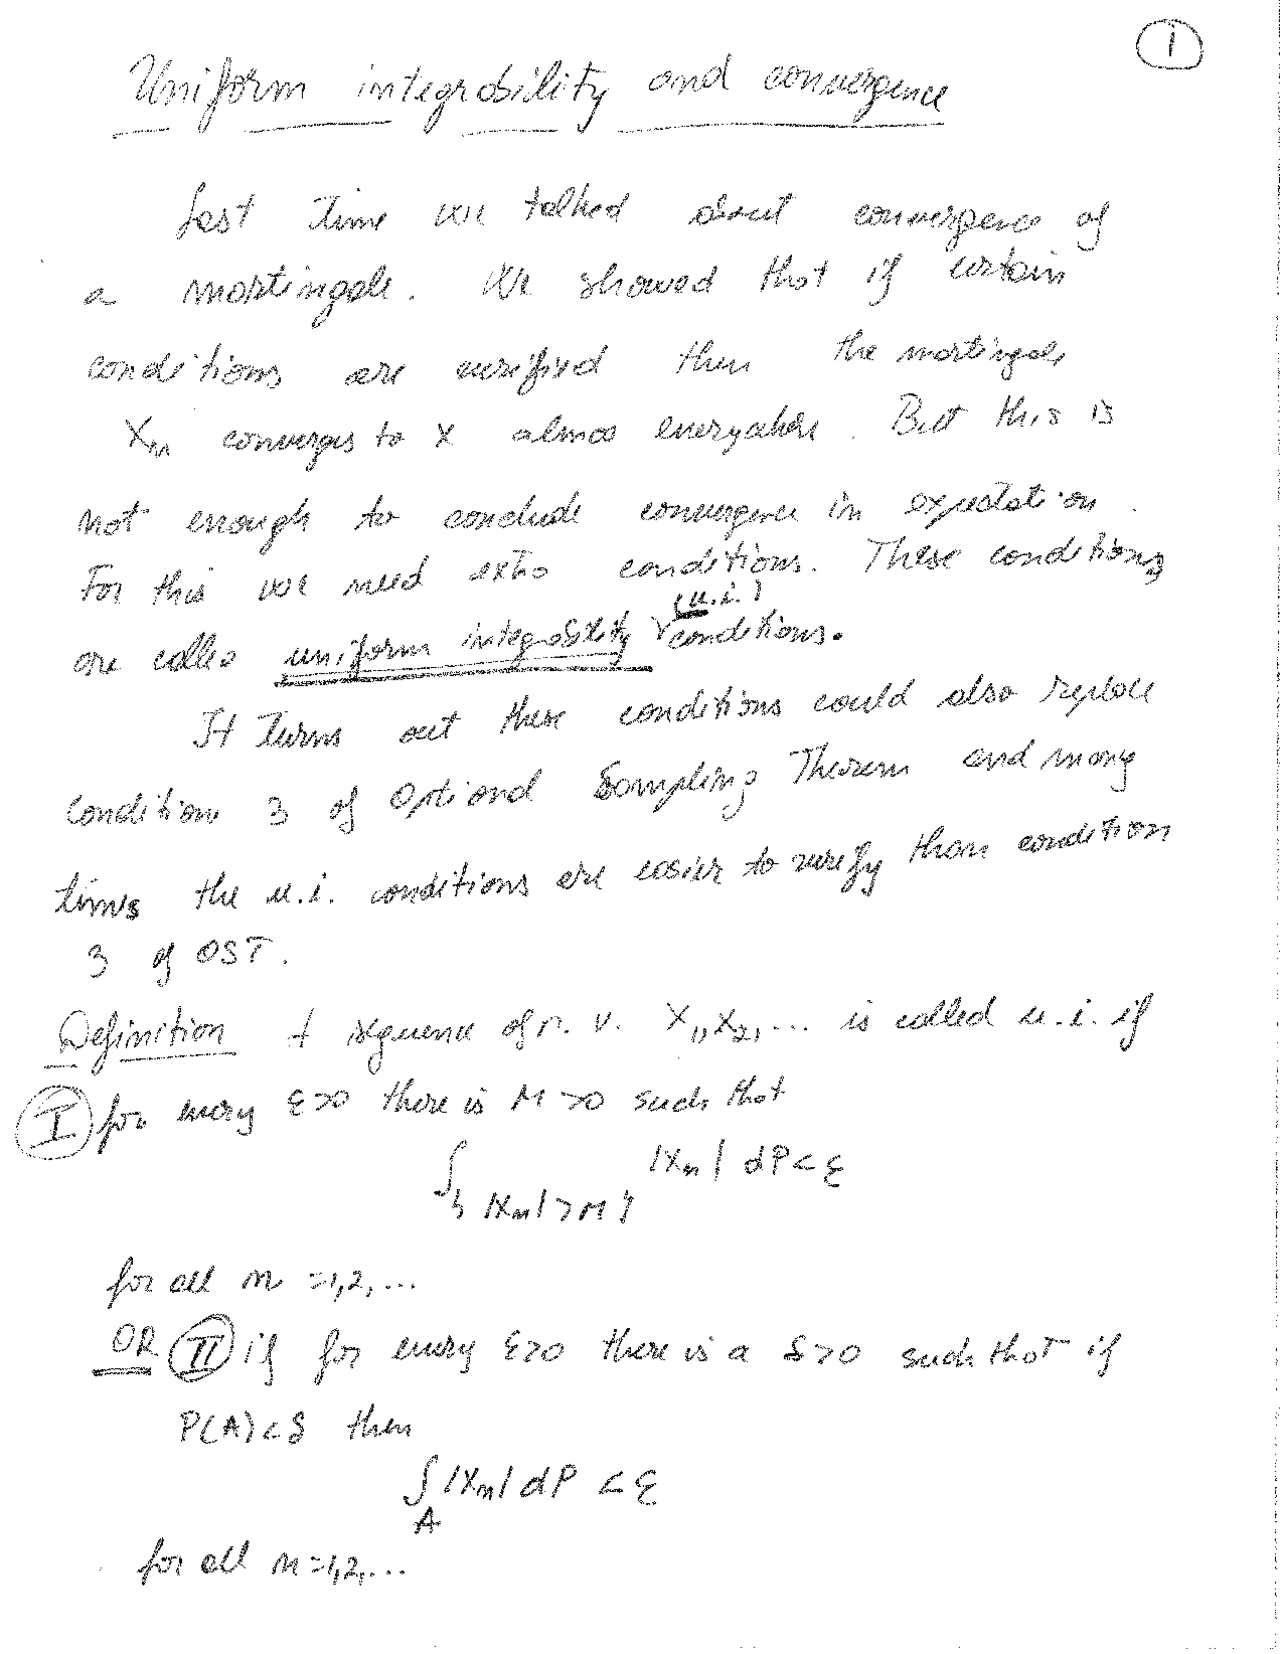 1
Uniform integrability and convergence
Last time we talked about convergence of
a martingale. We showed that if certain
conditions are verified then the martingale
Xn converges to X almos everywhere. But this is
not enough to conclude convergence in expectation.
For this we need extra conditions. These conditions
are called uniform integrability (u.i.) conditions.
It turns out these conditions could also replace
condition 3 of Optional Sampling Theorem and many
times the u.i. conditions are easier to verify than condition
3 of OST.
Definition A sequence of r.v. X1, X2, ... is called u.i. if
I for every ε>0 there is M>0 such that
∫{|Xn|>M} |Xn| dP < ε
for all n = 1,2,...
OR II if for every ε>0 there is a δ>0 such that if
P(A)<δ then
∫A |Xn| dP < ε
for all n=1,2,...